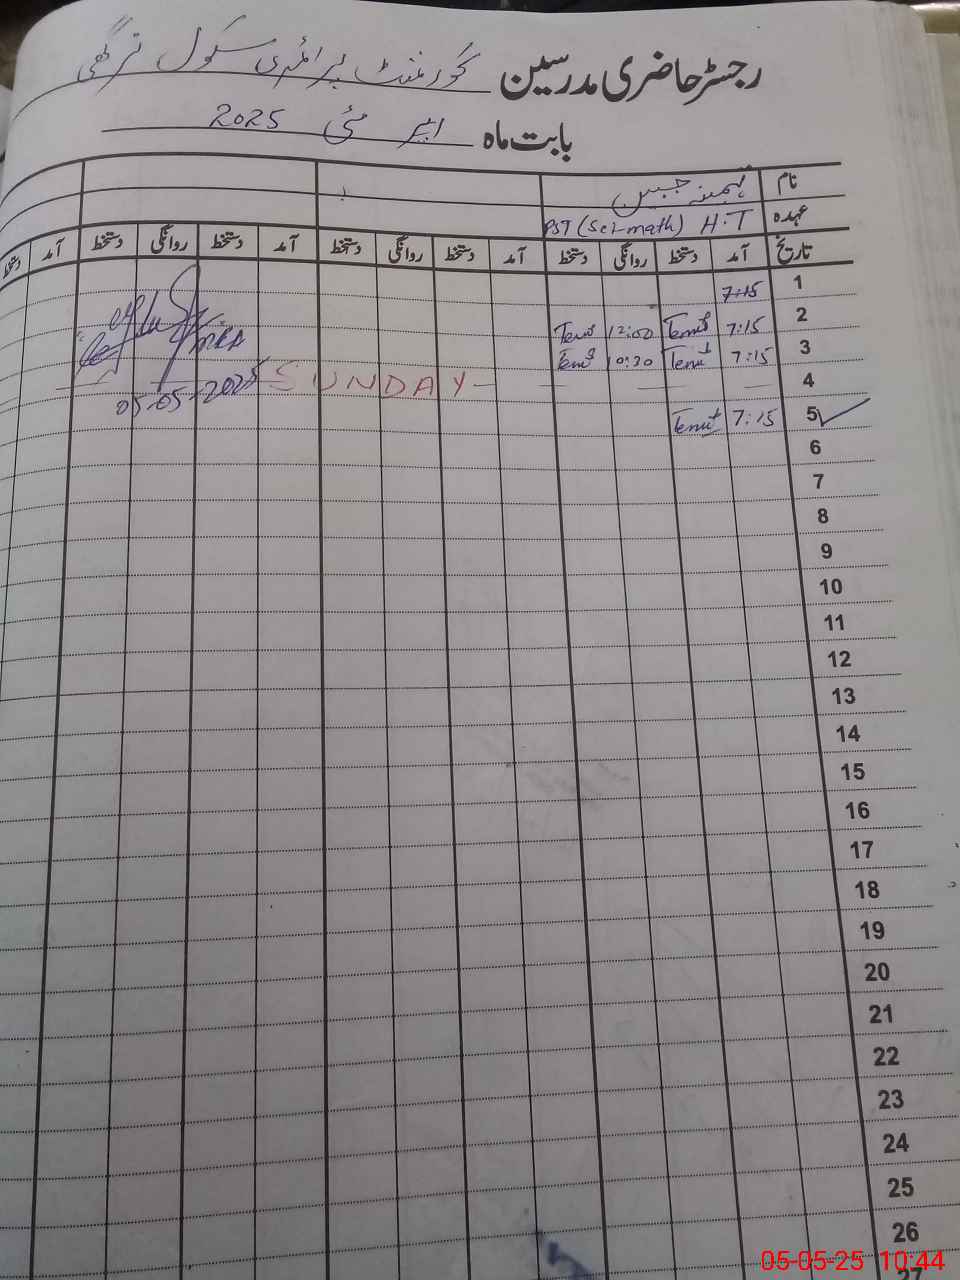 رجسٹر حاضری مدرسین گورنمنٹ پرائمری سکول
بابت ماہ مئی 2025
نام جبین
عہدہ PST (Sci-math) H.T
تاریخ آمد دستخط روانگی دستخط آمد دستخط روانگی دستخط آمد دستخط روانگی دستخط آمد دستخط
1 7:15
2 7:15 12:00
3 7:15 10:30
4 — — — — — SUNDAY —
5 7:15
05-05-2025
6
7
8
9
10
11
12
13
14
15
16
17
18
19
20
21
22
23
24
25
26
27
05-05-25 10:44